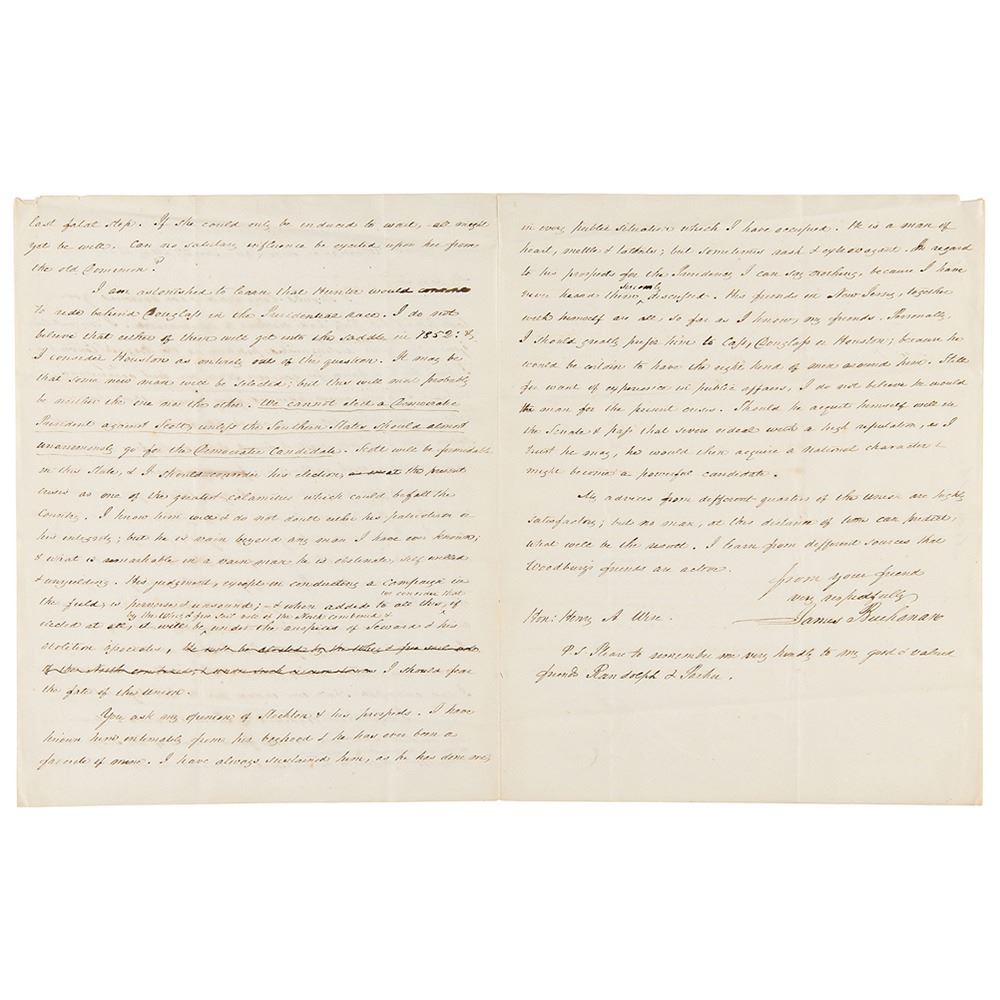 last fatal step. If she could only be induced to wait, all might
yet be well. Can no salutary influence be exerted upon her from
the old Dominion?
I am astonished to learn that Hunter would
to ride behind Douglass in the Presidential race. I do not
believe that either of them will get into the saddle in 1852: &
I consider Houston as entirely out of the question. It may be
that some new man will be selected; but this will most probably
be neither the one nor the other. We cannot elect a Democratic
President against Scott, unless the Southern States should almost
unanimously go for the Democratic Candidate. Scott will be formidable
in this State, & I should consider his election, in the present
crisis as one of the greatest calamities which could befall the
Country. I know him well & do not doubt either his patriotism or
his integrity; but he is vain beyond any man I have ever known;
& what is remarkable in a vain man he is obstinate, self willed
& unyielding. His judgment, except in conducting a Campaign in
the field, is perverse & unsound; & when added to all this, we consider that if
elected at all, it will be by the Whig & free soil vote of the North combined & under the auspices of Seward & his
abolition associates, he will be elected by the Whig & free soil vote
of the North combined, I should fear
the fate of this Union.
You ask my opinion of Stockton & his prospects. I have
known him intimately from his boyhood & he has ever been a
friend of mine. I have always sustained him, as he has done me,
in every public situation which I have occupied. He is a man of
heart, mettle & talents; but sometimes rash & extravagant. In regard
to his prospects for the Presidency I can say nothing, because I have
never heard them seriously discussed. His friends in New Jersey, together
with himself are all, so far as I know, my friends. Personally,
I should greatly prefer him to Cass, Douglass or Houston; because he
would be certain to have the right kind of men around him. Still
for want of experience in public affairs, I do not believe he would
be the man for the present crisis. Should he acquit himself well in
the Senate & pass that severe ordeal with a high reputation, as I
trust he may, he would then acquire a national character &
might become a powerful candidate.
My advices from different quarters of the Union are highly
satisfactory; but no man, at this distance of time can predict,
what will be the result. I learn from different sources that
Woodbury's friends are active.
from your friend
very respectfully
James Buchanan
Hon: Henry A. Wise.
P.S. Please to remember me very kindly to my good & valued
friends Randolph & Parker.